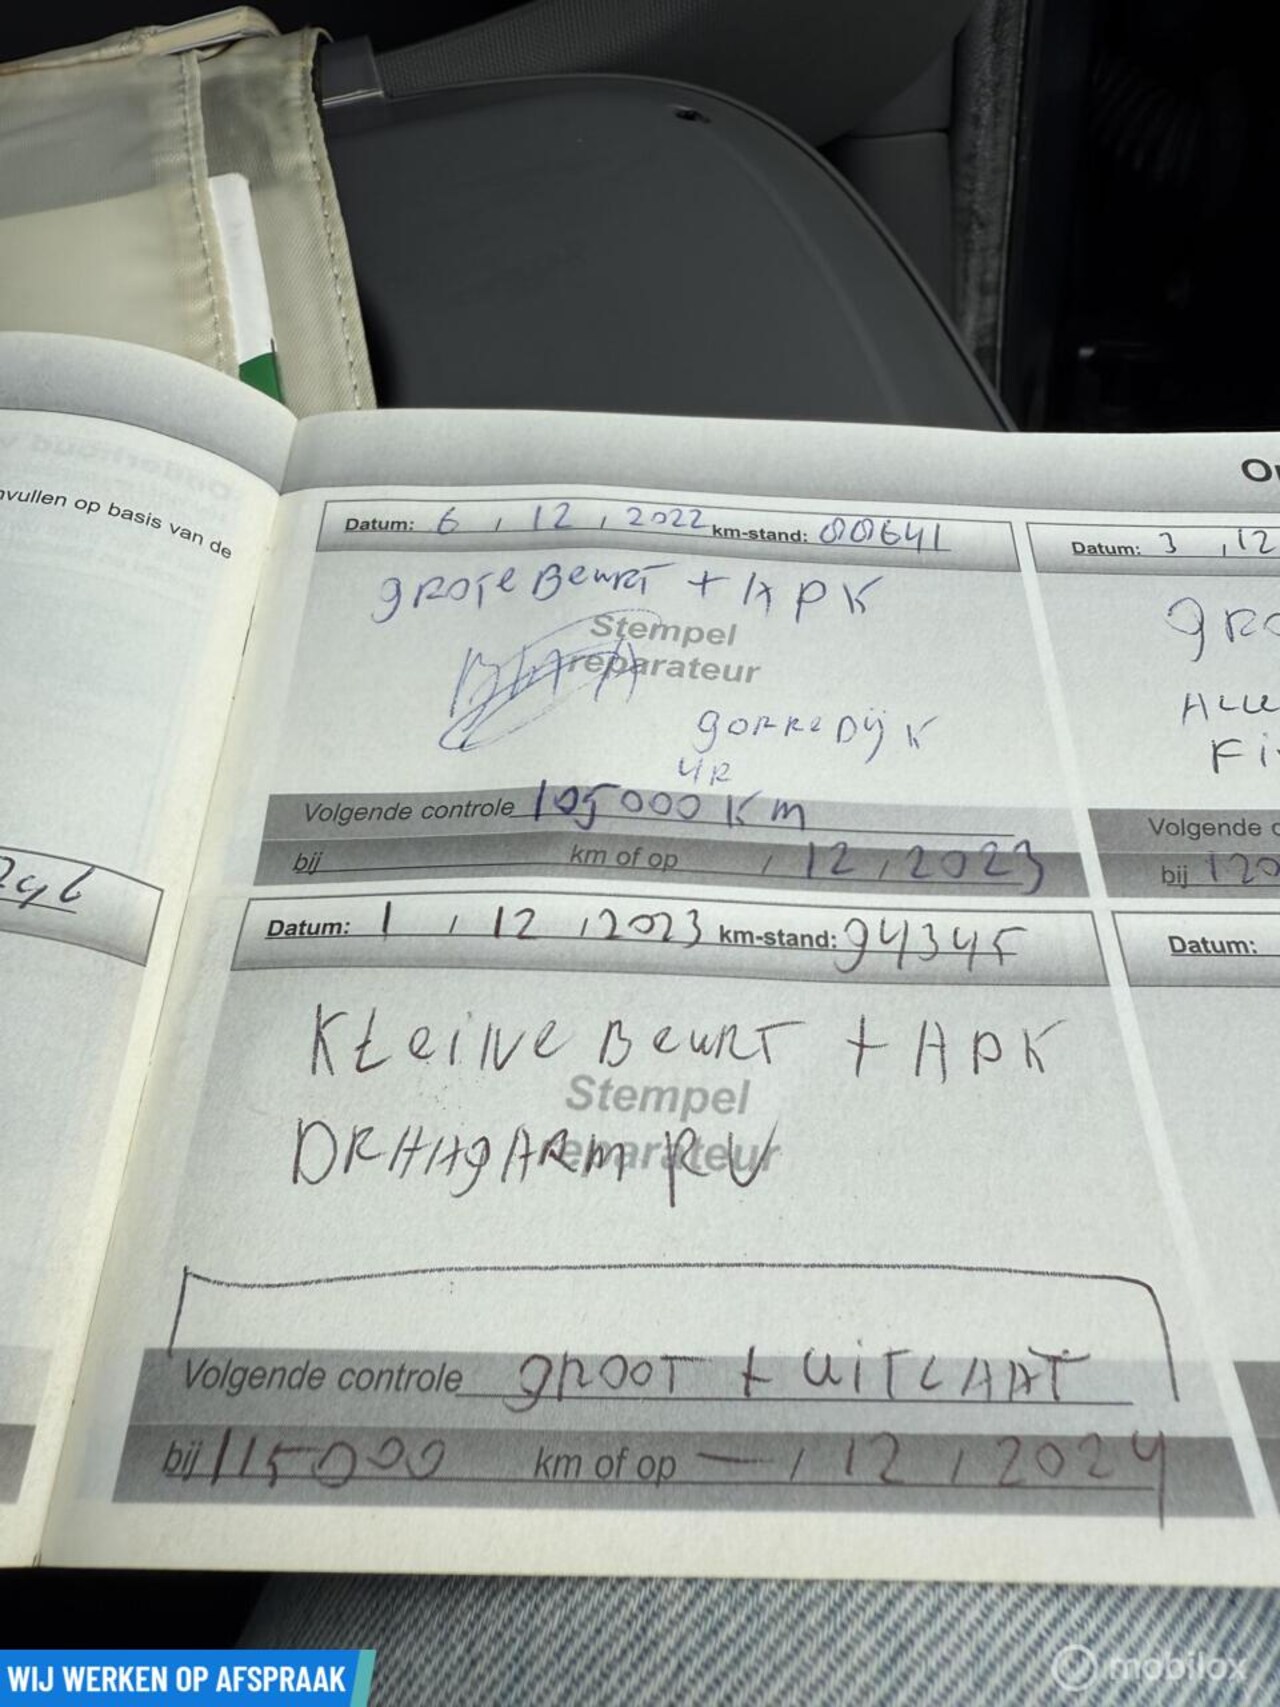 nvullen op basis van de
Or
Datum: 6 , 12 , 2022 km-stand: 88641
grote Beurt + APK
Stempel
reparateur
gorredijk
Volgende controle 105000 Km
bij km of op , 12 , 2023
Datum: 3 , 12
gro
Alle
Fi
Volgende c
bij 120
Datum: 1 , 12 , 2023 km-stand: 94345
Kleine Beurt + APK
Stempel
reparateur
DRAAgARM RV
Volgende controle gROOT + UITLAAT
bij 115000 km of op — , 12 , 2024
Datum:
WIJ WERKEN OP AFSPRAAK
mobilox